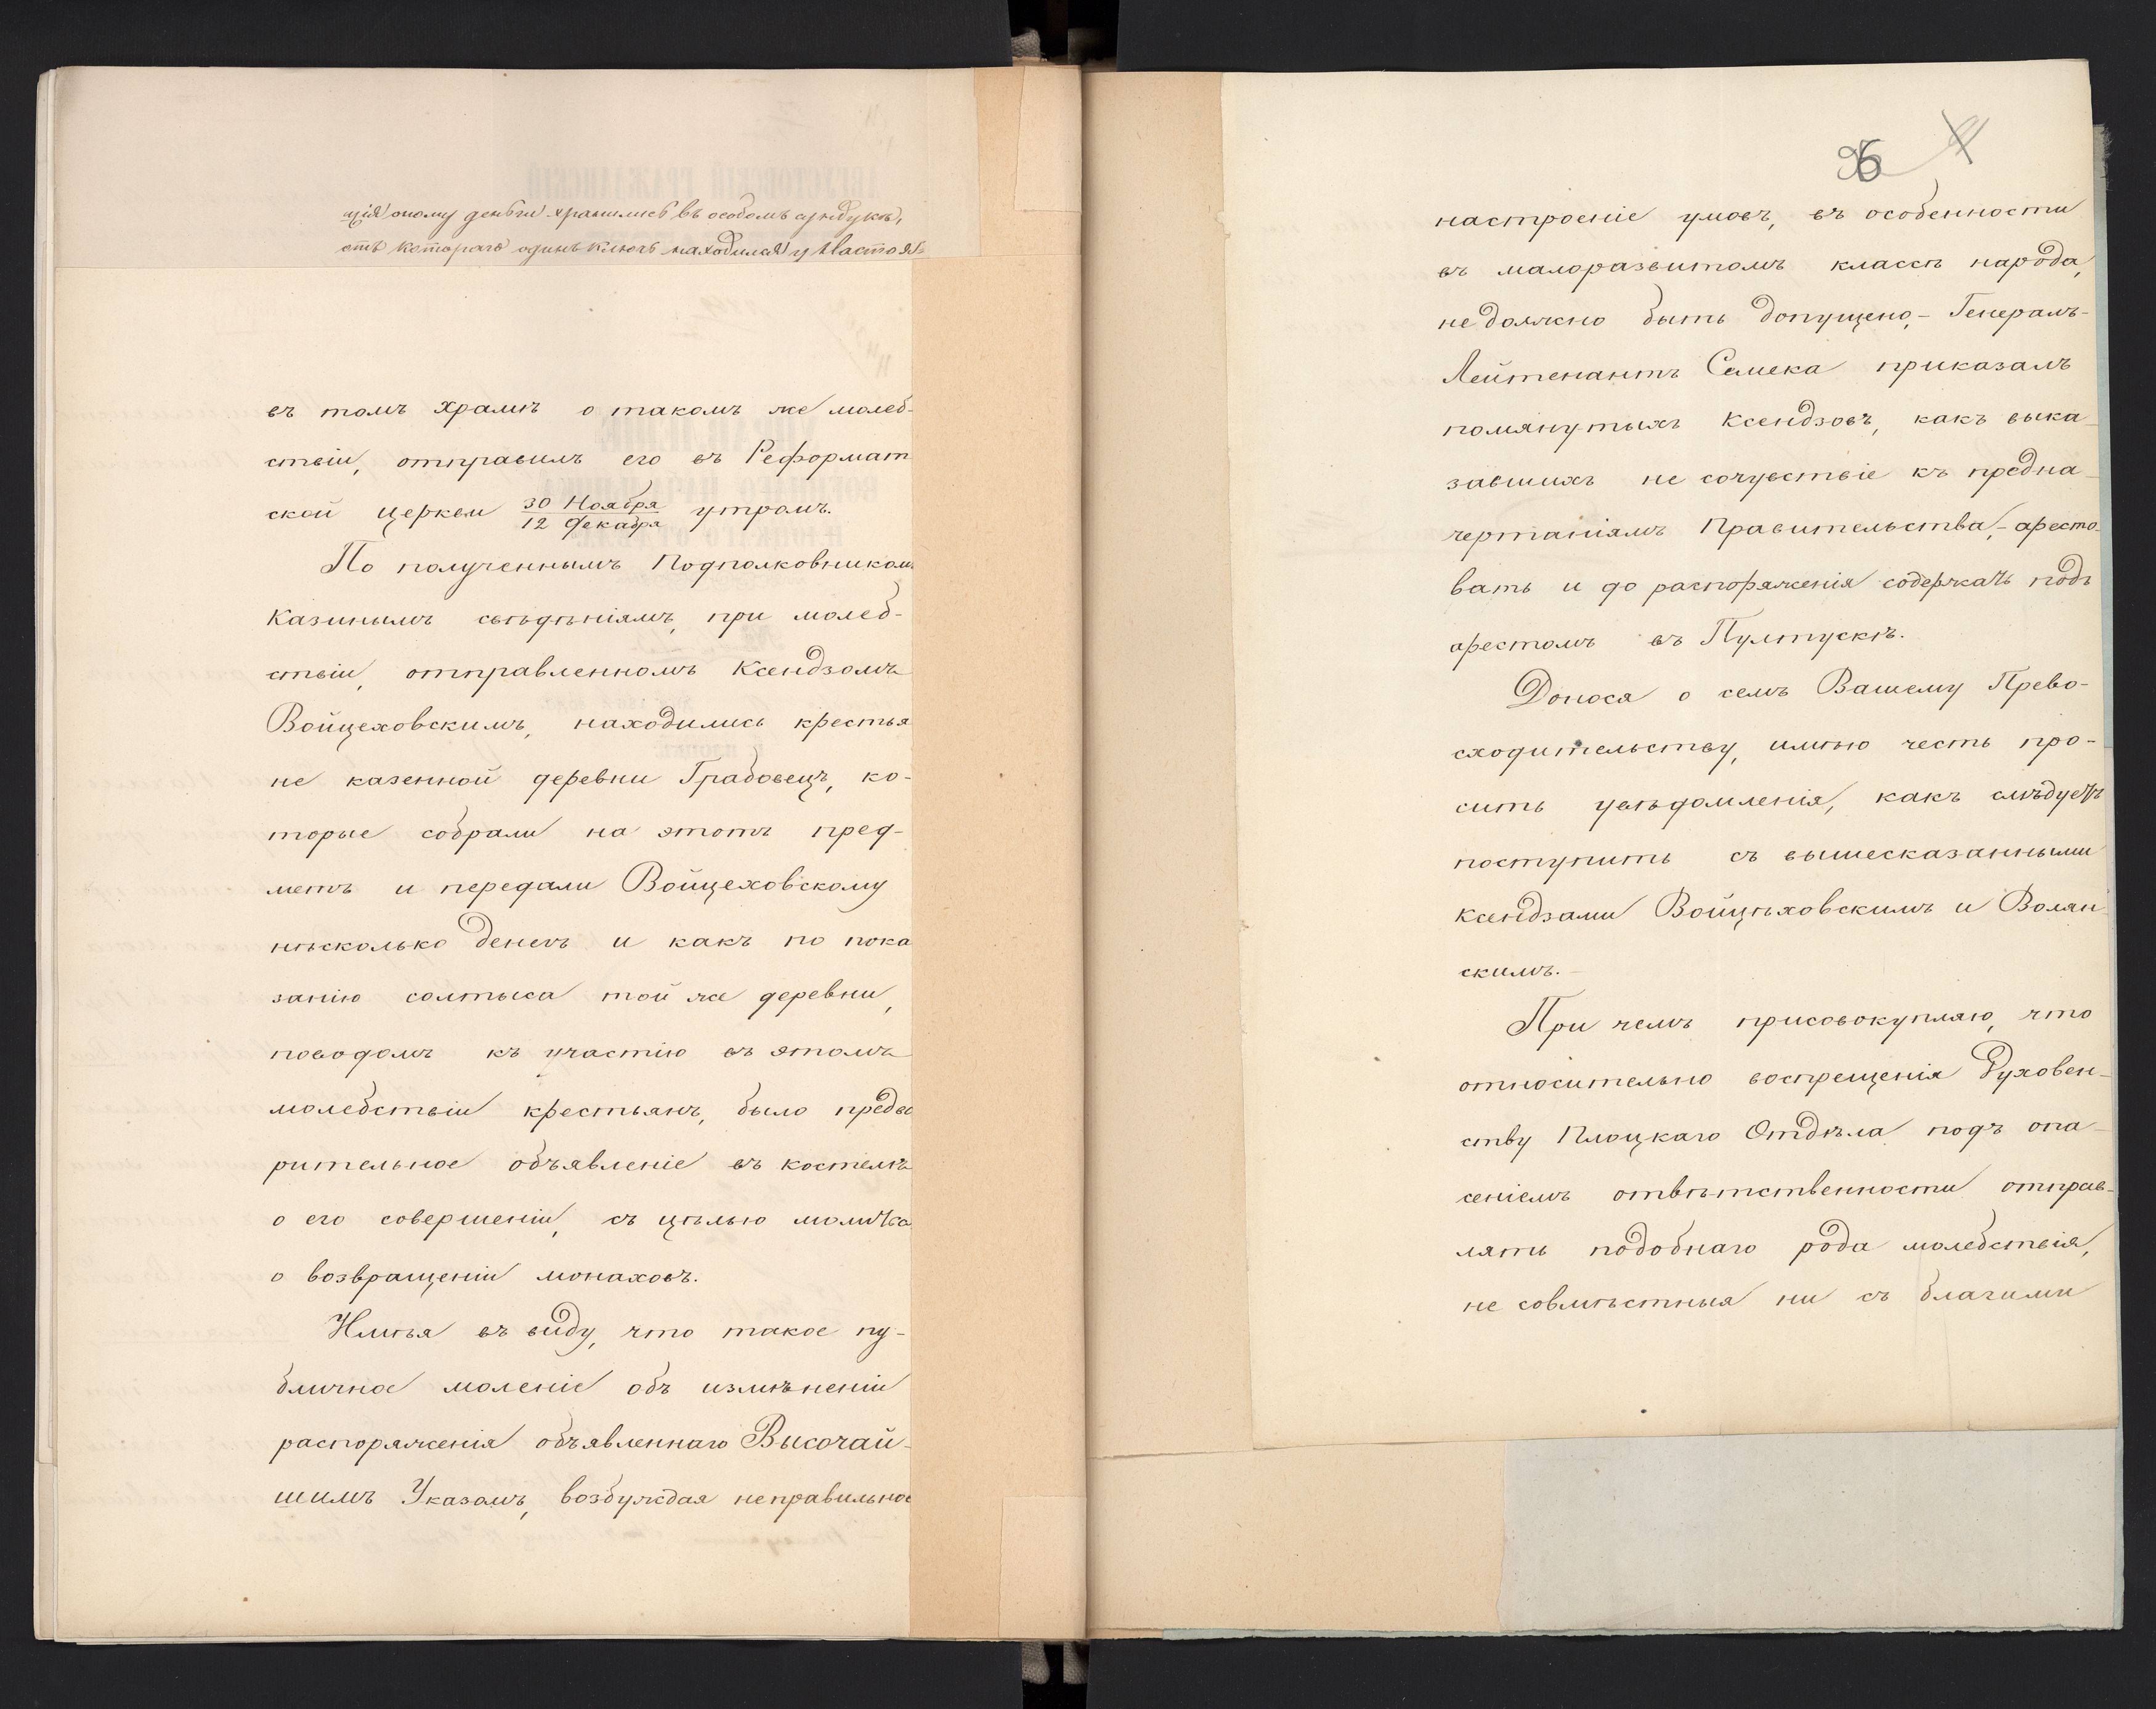 щія оному деньги хранились въ особомъ сундукѣ,
отъ котораго одинъ ключъ находился у Настоя
въ томъ храмѣ о такомъ же молеб-
ствіи, отправилъ его въ Реформат
ской церкви 30 Ноября / 12 Декабря утромъ.
По полученнымъ Подполковникомъ
Казинымъ свѣдѣніямъ, при молеб-
ствіи, отправленномъ Ксендзомъ
Войцеховскимъ, находились крестья
не казенной деревни Грабовецъ, ко-
торые собрали на этотъ пред-
метъ и передали Войцеховскому
нѣсколько денегъ и какъ по пока
занію солтыса той же деревни,
поводомъ къ участію въ этомъ
молебствіи крестьянъ, было предва
рительное объявленіе въ костелѣ
о его совершеніи, съ цѣлью молитьса
о возвращеніи монаховъ.
Имѣя въ виду, что такое пу-
бличное моленіе объ измѣненіи
распоряженія объявленнаго Высочай-
шимъ Указомъ, возбуждая неправильное
6 4
настроеніе умовъ, въ особенности
въ малоразвитомъ классѣ народа,
не должно быть допущено,- Генералъ-
Лейтенантъ Семека приказалъ
помянутыхъ Ксендзовъ, какъ выка-
завшихъ не сочуствіе къ предна-
чертаніямъ Правительства,- аресто-
вать и до распоряженія содержать подъ
арестомъ въ Пултускѣ.
Донося о семъ Вашему Прево-
сходительству, имѣю честь про-
сить увѣдомленія, какъ слѣдуетъ
поступить съ вышесказанными
ксендзами Войцѣховскимъ и Волян
скимъ.-
При чемъ присовокупляю, что
относительно воспрещенія Духовен-
ству Плоцкаго Отдѣла подъ опа-
сеніемъ отвѣтственности отправ-
лять подобнаго рода молебствія,
не совмѣстныя ни съ благими